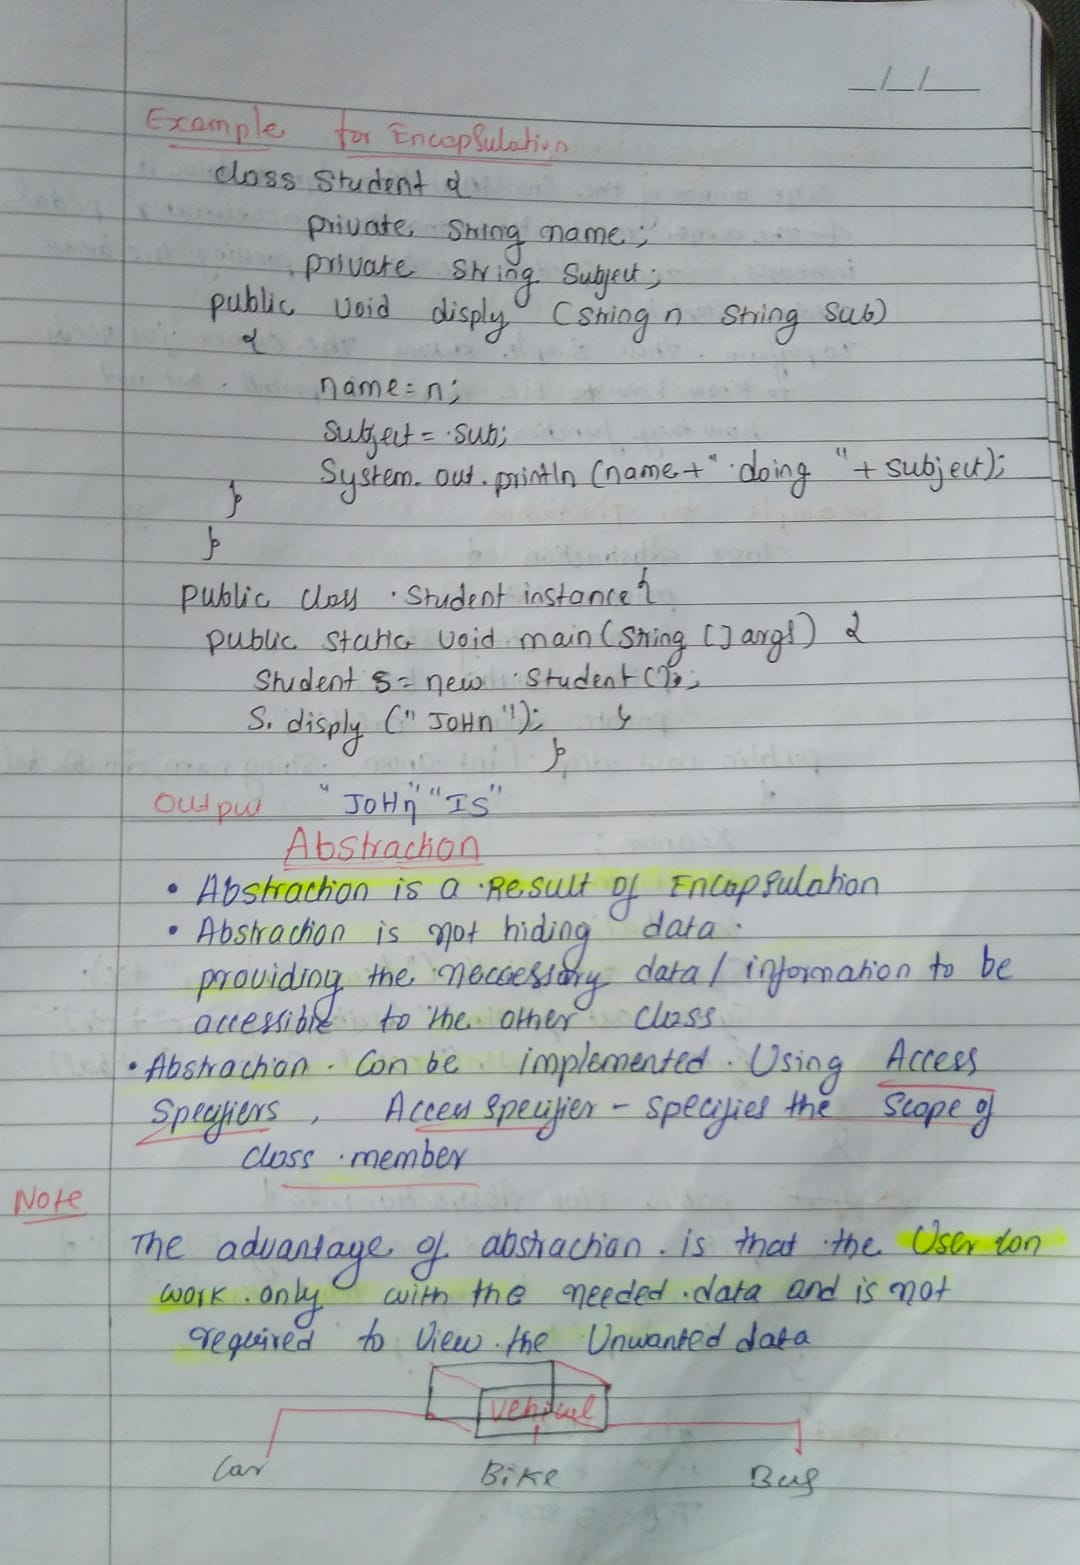 Example for Encapsulation
class Student {
private String name;
private String Subject;
public void disply (String n String Sub)
{
name = n;
subject = sub;
System.out.println (name + " doing " + subject);
}
}
public class Student instance {
public static void main (String [] args) {
Student s = new Student ();
S. disply (" JOHn "); }
}
Output "JOHn" "IS"
Abstraction
• Abstraction is a Result of Encapsulation
• Abstraction is not hiding data.
providing the neccessary data / information to be
accessible to the other class
• Abstraction Can be implemented Using Access
Specifiers, Access specifier - specifies the Scope of
class member
Note
The advantage of abstraction is that the User con
work only with the needed data and is not
required to View the Unwanted data
Vehical
Car Bike Bus